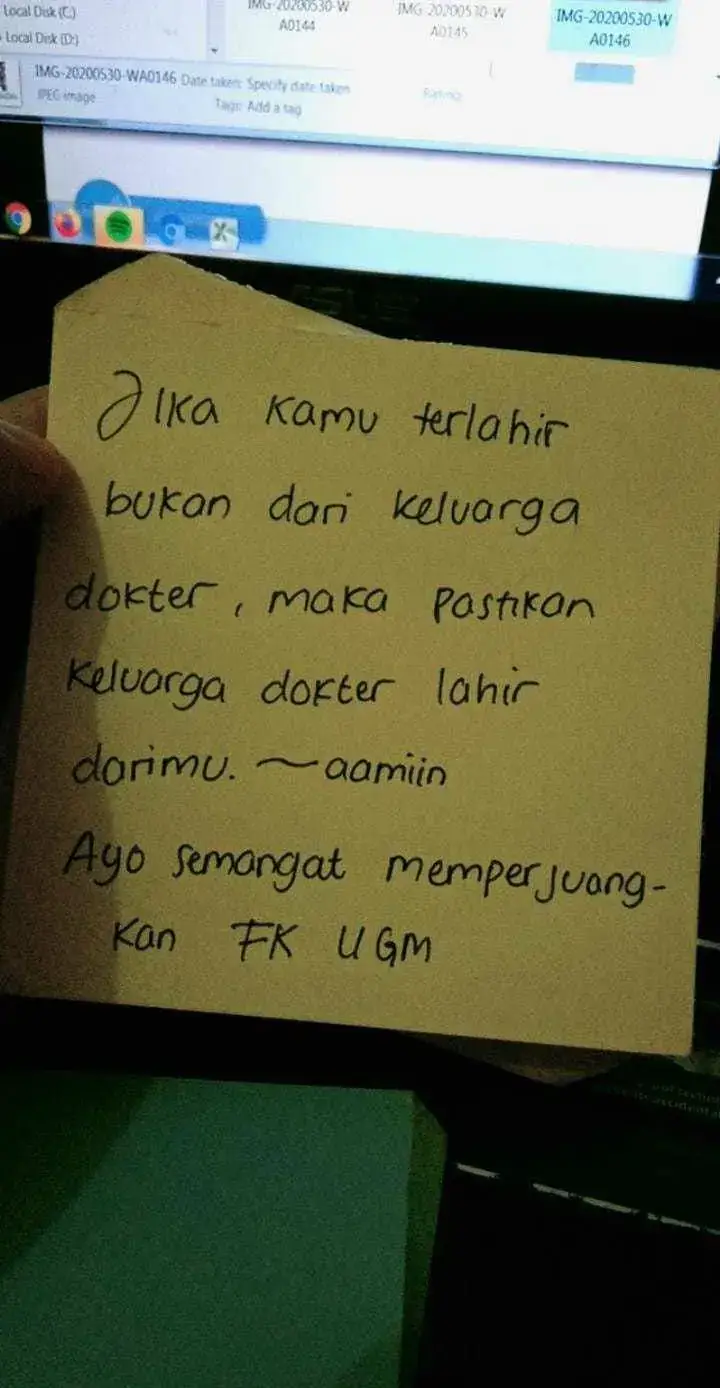 Local Disk (C:)
Local Disk (D:)
IMG-20200530-W
A0144
IMG-20200530-W
A0145
IMG-20200530-W
A0146
IMG-20200530-WA0146 Date taken: Specify date taken
JPEG image
Tags: Add a tag
Rating:
Jika kamu terlahir
bukan dari keluarga
dokter, maka pastikan
keluarga dokter lahir
darimu. ~aamiin
Ayo semangat memperjuang-
kan FK UGM